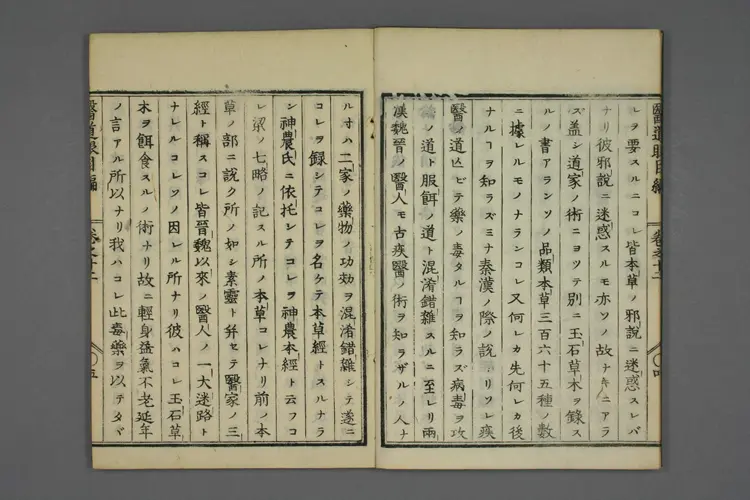 醫道眼目編 卷之十二 ○四
レヲ要スルニコレ皆本草ノ邪說ニ迷惑スレバ
ナリ彼邪說ニ迷惑スルモ亦ソノ故ナキニアラ
ズ蓋シ道家ノ術ニヨツテ別ニ玉石草木ヲ錄ス
ルノ書アランソノ品類本草三百六十五種ノ數
ニ據レルモノナランコレ又何レカ先何レカ後
ナルヿヲ知ラズミナ秦漢ノ際ノ說ナリソレ疾
醫ノ道亾ビテ藥ノ毒タルヿヲ知ラズ病毒ヲ攻
ノ道ト服餌ノ道ト混淆錯雜スルニ至レリ兩
漢魏晉ノ醫人モ古疾醫ノ術ヲ知ラザルノ人ナ
ル寸ハ二家ノ藥物ノ功効ヲ混淆錯雜シテ遂ニ
コレヲ錄シテコレヲ名ケテ本草經トスルナラ
シ神農氏ニ依托シテコレヲ神農本經ト云フコ
レ梁ノ七略ノ記スル所ノ本草コレナリ前ノ本
草ノ部ニ說ク所ノ如シ素靈ト幷セテ醫家ノ三
經ト稱スコレ皆晉魏以來ノ醫人ノ一大迷路ト
ナレルコレソノ因レル所ナリ彼ハコレ玉石草
木ヲ餌食スルノ術ナリ故ニ輕身益氣不老延年
ノ言アル所以ナリ我ハコレ此毒藥ヲ以テタヾ
醫道眼目編 卷之十二 ○五